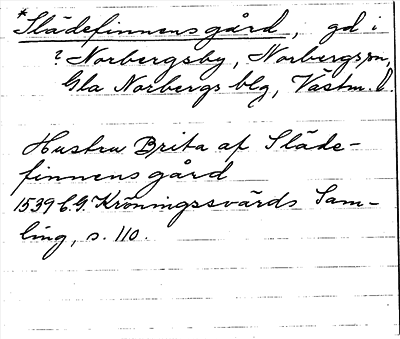 *Slädefinnensgård, gd i
? Norbergsby, Norbergs sn,
Gla Norbergs blg, Västm. l.
Hustru Brita af Släde-
finnens gård
1539 C.G. Kröningssvärds Sam-
ling, s. 110.